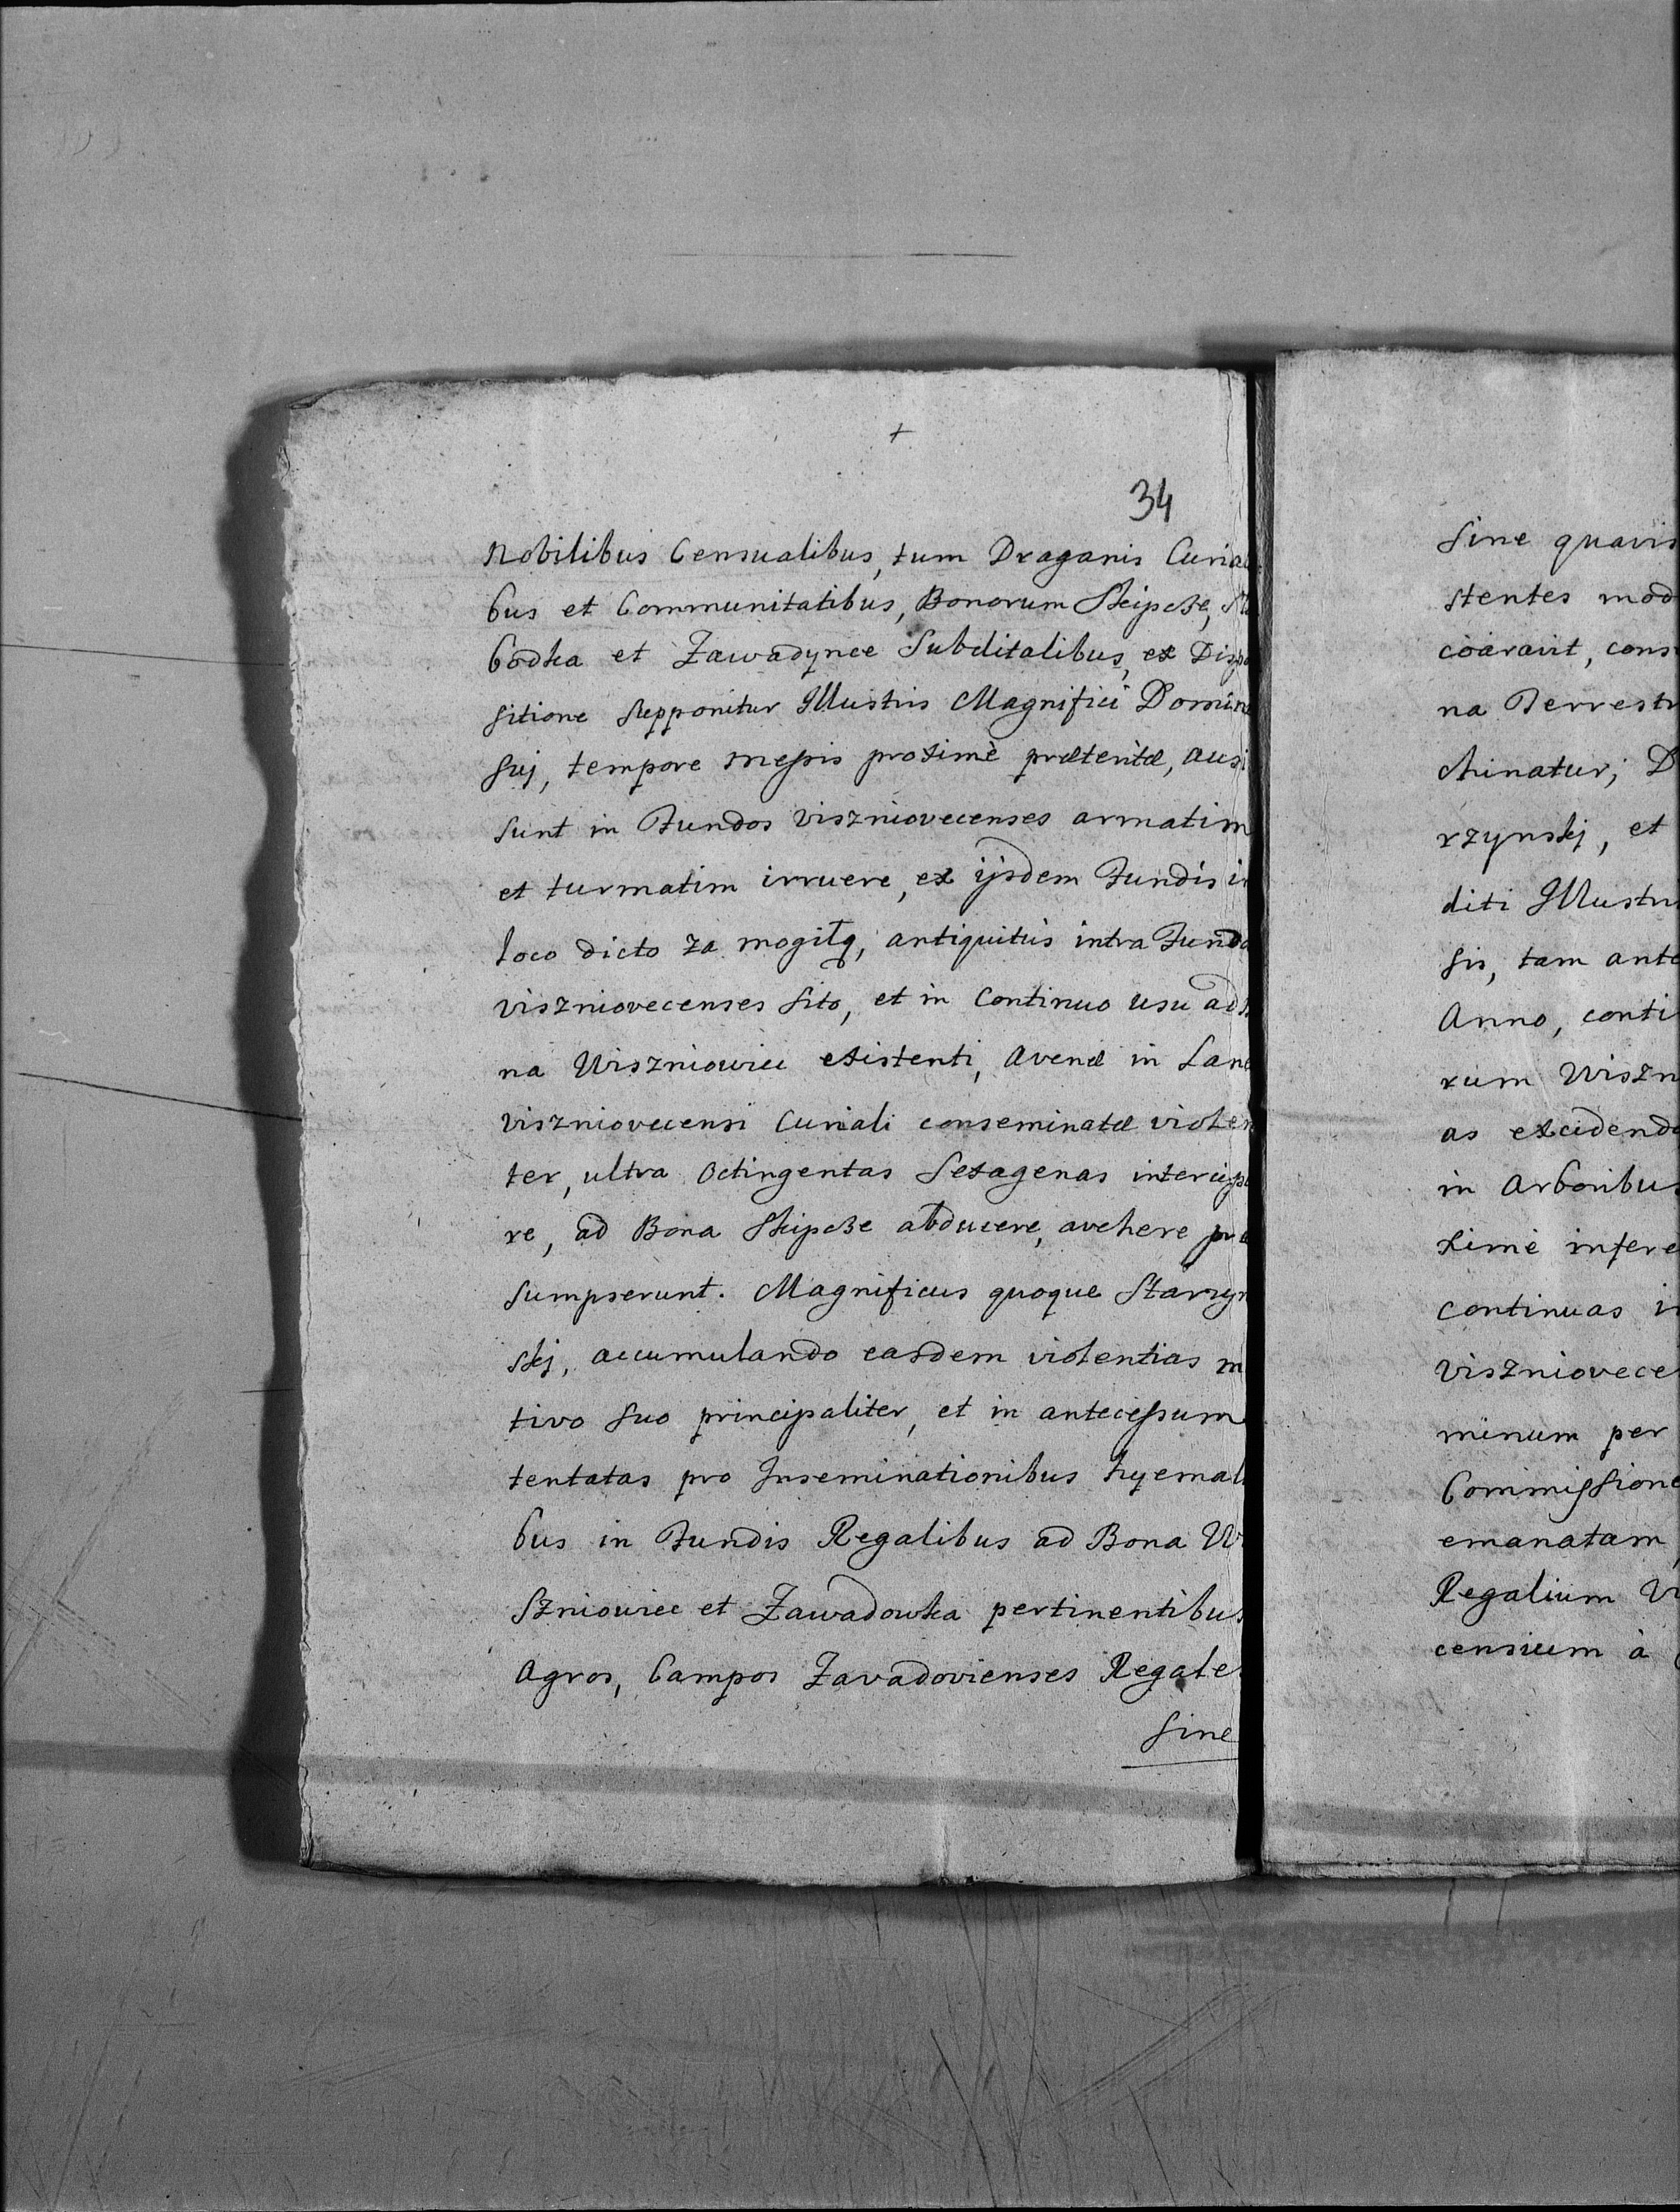 +
34
Nobilibus Censualibus, tum Draganis Curial
bus et Communitatibus, Bonorum Skipcze, Sło
bodka et Zawadynce Subditalibus, ex Dispo
sitione supponitur Illustris Magnifici Domini
suj, tempore messis proximè præteritæ, ausi
sunt in Fundos Viszniovecenses armatim
et turmatim irruere, ex ijsdem Fundis in
loco dicto za mogiłą, antiquitùs intra Fundo
viszniovecenses sito, et in Continuo usu ad
na Wiszniowiec existenti, Avenæ in Lane
viszniovecensi Curiali conseminatæ violen
ter, ultra Octingentas Sexagenas intercipe
re, ad Bona Skipcze abducere, avehere præ
sumpserunt. Magnificus quoque Starzyn
skj, accumulando easdem violentias m
tivo suo principaliter, et in antecessum
tentatas pro Inseminationibus hyemali
bus in Fundis Regalibus ad Bona Wi
szniowiec et Zawadowka pertinentibus
Agros, Campos Zavadovienses Regale
sine
sine quavis
stentes mod
coaravit, cons
na Terrestr
chinatur; D
rzynskj, et
diti Illustri
sis, tam ante
Anno, conti
rum Wiszn
as excidendo
in Arboribus
xime infere
continuas in
Viszniovece
minum per
Commissione
emanatam,
Regalium Vi
censium à